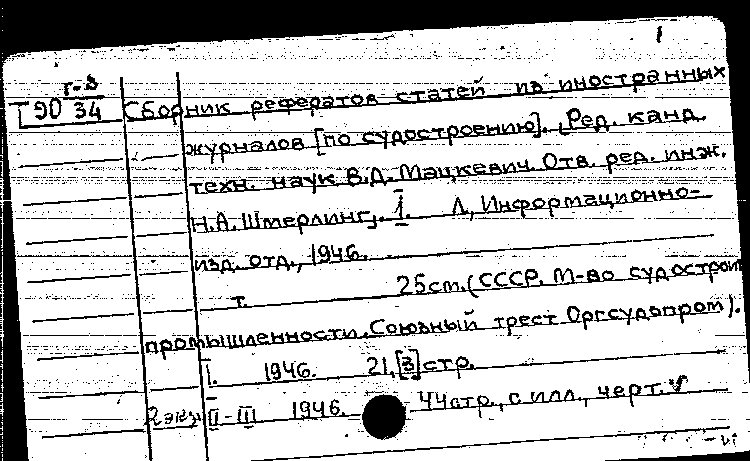 1
Г-8
Т 90 34 Сборник рефератов статей из иностранных
журналов [по судостроению]. [Ред. канд.
техн. наук В.Д. Мацкевич. Отв. ред. инж.
Н.А. Шмерлинг]. 1. Л, Информационно-
изд. отд., 1946.
т. 25см. (СССР. М-во судостроит
промышленности. Союзный трест Оргсудопром).
I. 1946. 21, [3] стр.
II-III 1946. 44стр., с илл., черт.